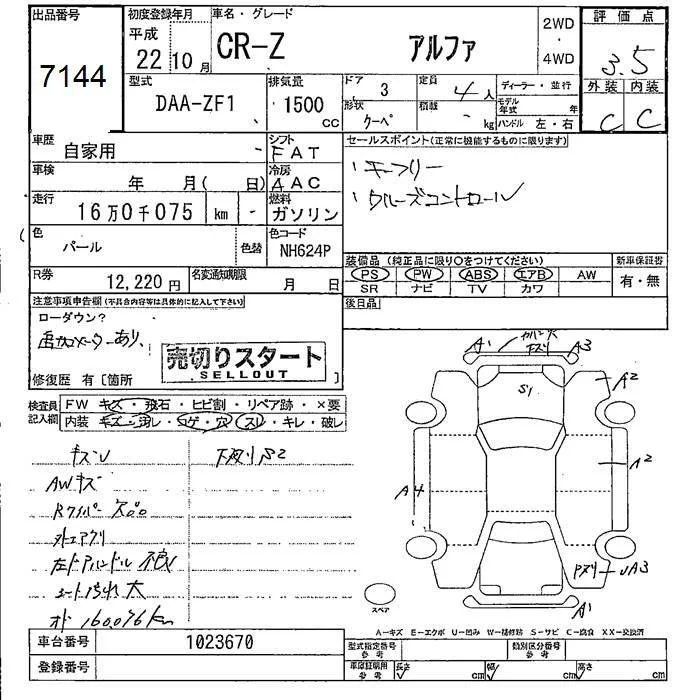 出品番号
7144
初度登録年月
平成
22年10月
車名・グレード
CR-Z アルファ
2WD
・
4WD
評価点
3.5
外装 内装
C C
型式
DAA-ZF1
排気量
1500
cc
ドア
3
形状
クーペ
定員
4人
積載
kg
ディーラー・並行
モデル年式
年
ハンドル 左・右
車歴
自家用
シフト
FAT
車検
年 月( 日)
冷房
AAC
走行
16万0千075 km
燃料
ガソリン
色
パール
色替
色コード
NH624P
R券
12,220円
名変通知期限
月 日
セールスポイント(正常に機能するものに限ります)
、キーフリー
、クルーズコントロール
装備品 (純正品に限り○をつけてください)
PS PW ABS エアB AW
SR ナビ TV カワ
新車保証書
有・無
後日品
注意事項申告欄(不具合内容等は具体的に記入して下さい)
ローダウン?
売切りスタート
SELLOUT
修復歴 有〔箇所 〕
検査員
記入欄
FW キズ・飛石・ヒビ割・リペア跡・×要
内装 キズ・汚レ・コゲ・穴・スレ・キレ・破レ
キズU
下廻りS2
AWキズ
外エアクリ
左ドアハンドル
シート汚れ大
オド160076km
A1
A3
S1
A2
A2
A4
UA3
A1
スペア
A-キズ E-エクボ U-凹み W-補修跡 S-サビ C-腐食 XX-交換済
車台番号
1023670
登録番号
型式指定番号
参考
類別区分番号
参考
車庫証明用
参考
長さ cm
幅 cm
高さ cm